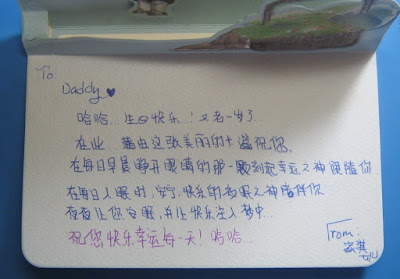 To
Daddy♥
哈哈.. 生日快乐...! 又老一岁了..
在此.. 藉由这张美丽的卡 滋祝你.
在每日早晨睁开眼睛的那一颗刻起幸运之神跟随你.
在每日入眠时, 安宁、快乐的夜眠之神陪伴你.
夜夜让你安眠, 并让快乐注入梦中...
祝您快乐幸运每一天! 哈哈...
From: